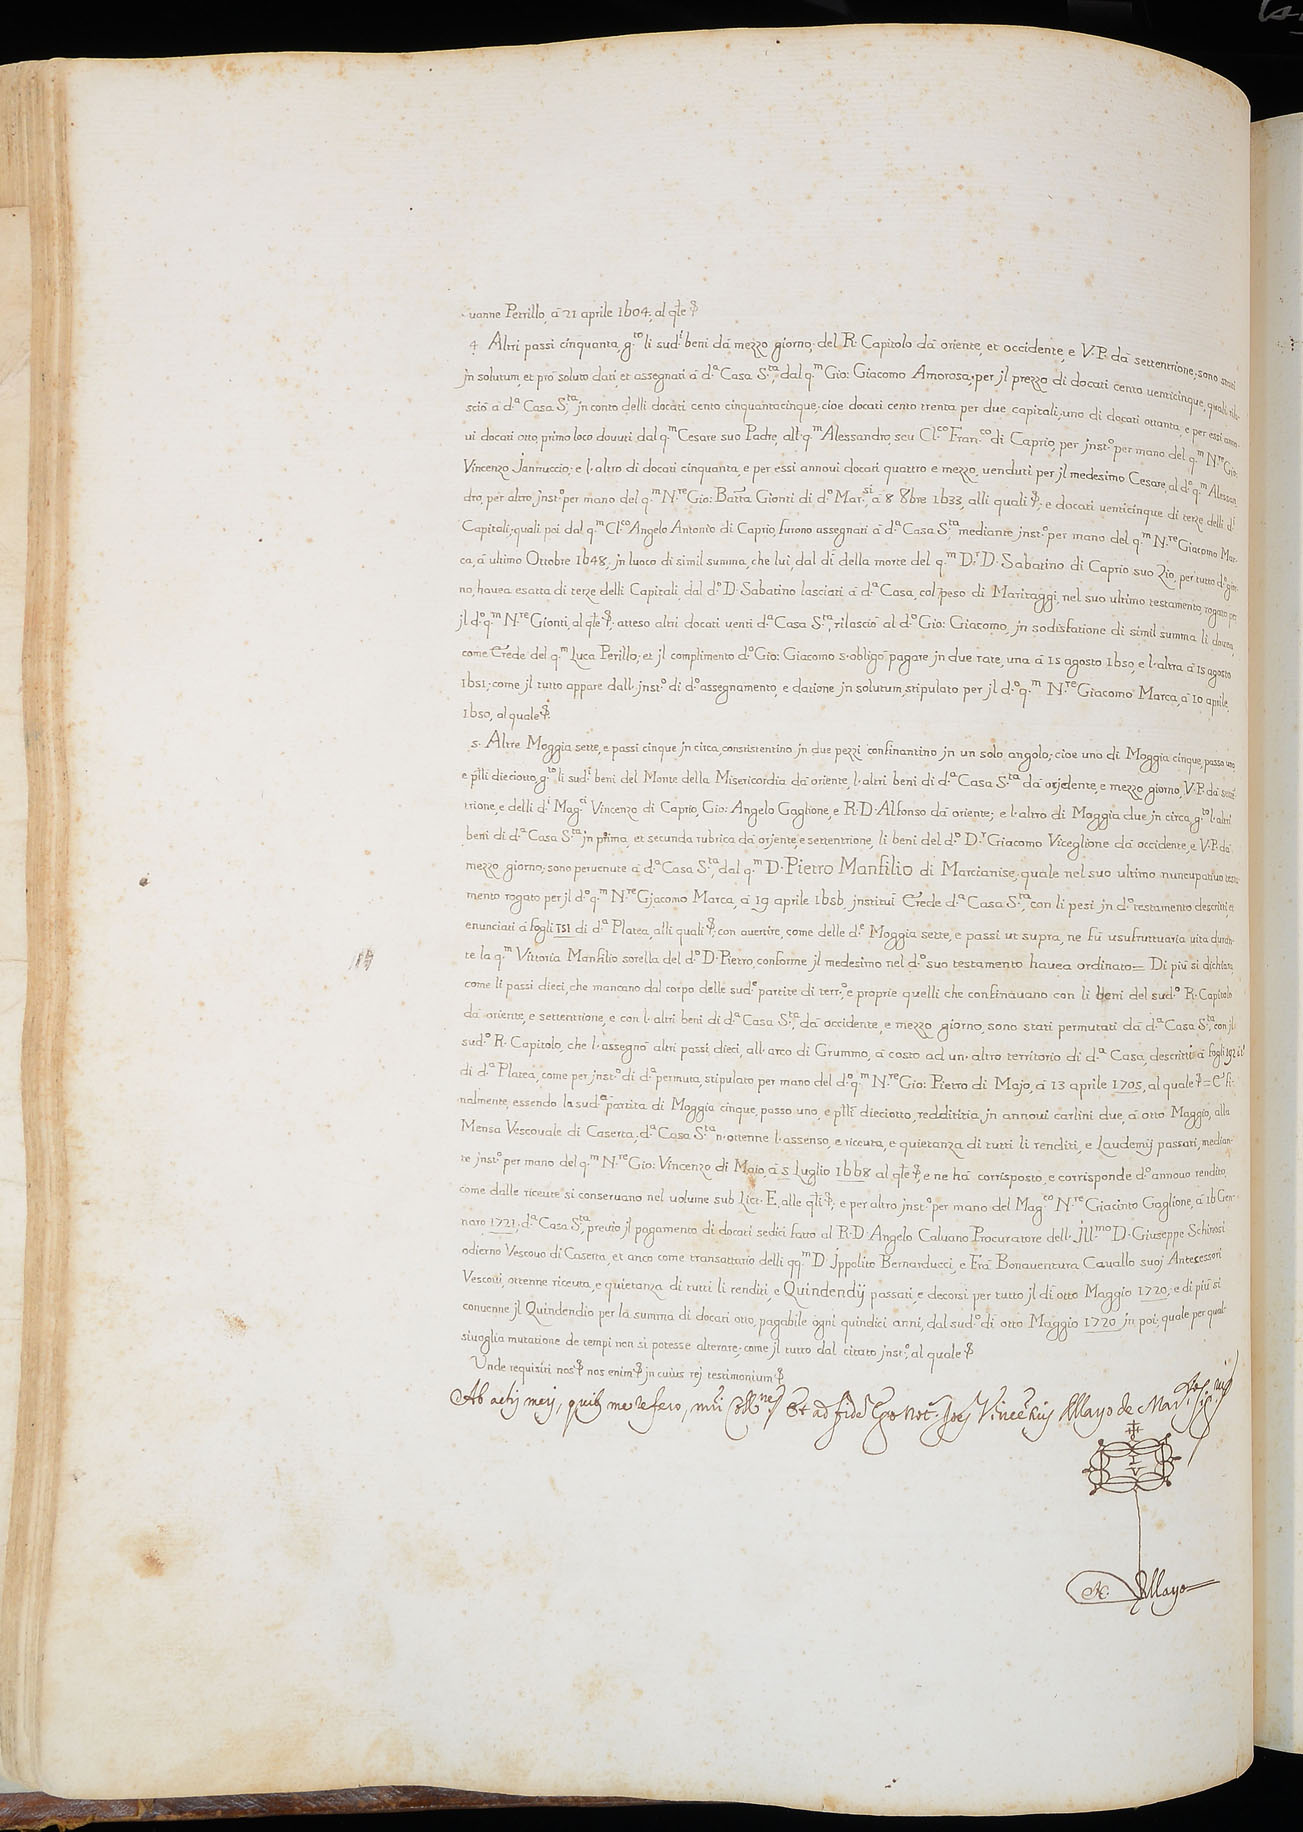 uanne Perrillo, à 21 aprile 1604, al qle
4 Altri passi cinquanta, g.to li sud.i beni dà mezzo giorno, del R. Capitolo dà oriente, et occidente, e V.P. dà settentrione, sono stati
jn solutum, et prò soluto dati, et assegnati à d.a Casa S.ta, dal q.m Gio: Giacomo Amorosa, per jl prezzo di docati cento venticinque, quali rila-
sciò à d.a Casa S.ta jn conto delli docati cento cinquantacinque, cioe docati cento trenta per due capitali, uno di docati ottanta, e per essi anno-
ui docati otto, primo loco douuti dal q.m Cesare suo Padre, all. q.m Alessandro, seu Cl.co Fran.co di Caprio, per jnst.o per mano del q.m N.re Gio:
Vincenzo Jannuccio; e l. altro di docati cinquanta, e per essi annoui docati quattro e mezzo, uenduti per jl medesimo Cesare, al d.o q.m Alessan-
dro, per altro jnst.o per mano del q.m N.re Gio: Batta Gionti di d.o Mar.si, à 8 8bre 1633, alli quali; e docati uenticinque di terze delli d.i
Capitali; quali poi dal q.m Cl.co Angelo Antonio di Caprio, furono assegnati à d.a Casa S.ta mediante jnst.o per mano del q.m N.re Giacomo Mar-
ca, à ultimo Ottobre 1648, jn luoco di simil summa, che lui, dal dì della morte del q.m D.r D. Sabatino di Caprio suo Zio, per tutto d.o gior-
no, hauea esatta di terze delli Capitali, dal d.o D. Sabatino lasciati à d.a Casa, col peso di Maritaggi, nel suo ultimo testamento, rogato per
jl d.o q.m N.re Gionti, al qle; atteso altri docati uenti d.a Casa S.ta, rilasciò al d.o Gio: Giacomo, jn sodisfatione di simil summa li douea,
come Erede del q.m Luca Perillo; et jl complimento d.o Gio: Giacomo s. obligò pagare jn due rate, una à 15 agosto 1650, e l. altra à 15 agosto
1651; come jl tutto appare dall. jnst.o di d.o assegnamento, e datione jn solutum, stipulato per jl d.o q.m N.re Giacomo Marca, à 10 aprile,
1650, al quale
5. Altre Moggia sette, e passi cinque jn circa, consistentino jn due pezzi confinantino jn un solo angolo; cioe uno di Moggia cinque, passo uno,
e plli dieciotto, g.to li sud.i beni del Monte della Misericordia dà oriente, l. altri beni di d.a Casa S.ta dà ocjdente, e mezzo giorno, V.P. dà setten-
trione, e delli d.i Mag.ci Vincenzo di Caprio, Gio: Angelo Gaglione, e R.D. Alfonso dà oriente; e l. altro di Moggia due jn circa, g.to l. altri
beni di d.a Casa S.ta jn prima, et secunda rubrica dà orjente, e settentrione, li beni del d.o D.r Giacomo Viceglione dà occidente, e V.P. dà
mezzo giorno; sono peruenute à d.a Casa S.ta, dal q.m D. Pietro Manfilio di Marcianise, quale nel suo ultimo nuncupatiuo testa-
mento rogato per jl d.o q.m N.re Gjacomo Marca, à 19 aprile 1656, jnstituì Erede d.a Casa S.ta con li pesi jn d.o testamento descritti, et
enunciati à fogli 151 di d.a Platea, alli quali; con auertire, come delle d.e Moggia sette, e passi ut supra, ne fù usufruttuaria uita duran-
te la q.m Vittoria Manfilio sorella del d.o D. Pietro, conforme jl medesimo nel d.o suo testamento hauea ordinato = Di più si dichiara,
come li passi dieci, che mancano dal corpo delle sud.e partite di terr.o, e proprie quelli che confinauano con li beni del sud.o R. Capitolo
dà oriente, e settentrione, e con l. altri beni di d.a Casa S.ta, dà occidente, e mezzo giorno, sono stati permutati dà d.a Casa S.ta, con jl
sud.o R. Capitolo, che l. assegnò altri passi dieci, all. arco di Grummo, à costo ad un. altro territorio di d.a Casa, descritti à fogli
di d.a Platea, come per jnst.o di d.a permuta, stipulato per mano del d.o q.m N.re Gio: Pietro di Majo, à 13 aprile 1705, al quale = E fi-
nalmente, essendo la sud.a partita di Moggia cinque, passo uno, e plli dieciotto, reddititia jn annoui carlini due, à otto Maggio, alla
Mensa Vescouale di Caserta, d.a Casa S.ta n. ottenne l. assenso, e riceuta, e quietanza di tutti li renditi, e Laudemij passati, median-
te jnst.o per mano del q.m N.re Gio: Vincenzo di Maio, à 5 Luglio 1668 al qle, e ne hà corrisposto, e corrisponde d.o annouo rendito,
come dalle riceute si conseruano nel uolume sub Lict. E, alle qli; e per altro jnst.o per mano del Mag.co N.re Giacinto Gaglione, à 16 Gen-
naro 1721, d.a Casa S.ta, preuio jl pagamento di docati sedici fatto al R.D. Angelo Caluano Procuratore dell. Jll.mo D. Giuseppe Schinosi
odierno Vescouo di Caserta, et anco come transattario delli qq.m D. Jppolito Bernarducci, e Frà Bonauentura Cauallo suoj Antecessori
Vescoui, ottenne riceuta, e quietanza di tutti li renditi, e Quindendij passati, e decorsi per tutto jl dì otto Maggio 1720; e di più si
conuenne jl Quindendio per la summa di docati otto, pagabile ogni quindici anni, dal sud.o dì otto Maggio 1720 jn poi; quale per qual-
siuoglia mutatione de tempi non si potesse alterare; come jl tutto dal citato jnst.o, al quale
Unde requisiti nos nos enim jn cuius rej testimonium
Ab actis meis, quib. me refero, Et ad fidem Ego Not. Joes Vincentius Mayo de
I
V
N. Mayo